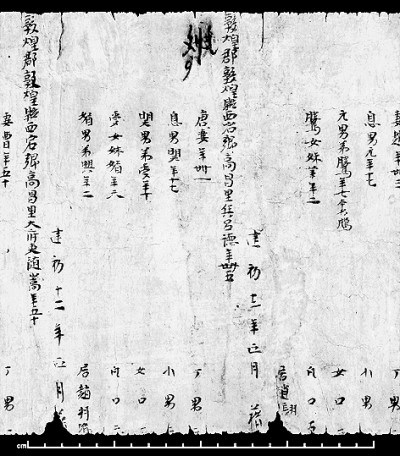 息男元年十七 小男
元男弟騰年七 本名騰 女口二
騰女妹華年二 凡口五
居趙羽
建初十二年正月籍
敦煌郡敦煌縣西宕鄉高昌里兵呂德年卌五
唐妻年卌一 丁男二
息男年十七 小男
男弟受年十 女口二
受女妹媚年六 凡口六
媚男弟興年二 居趙羽塢
建初十二年正月籍
敦煌郡敦煌縣西宕鄉高昌里大府吏隨嵩年五十
妻曹年五十 丁男二
cm